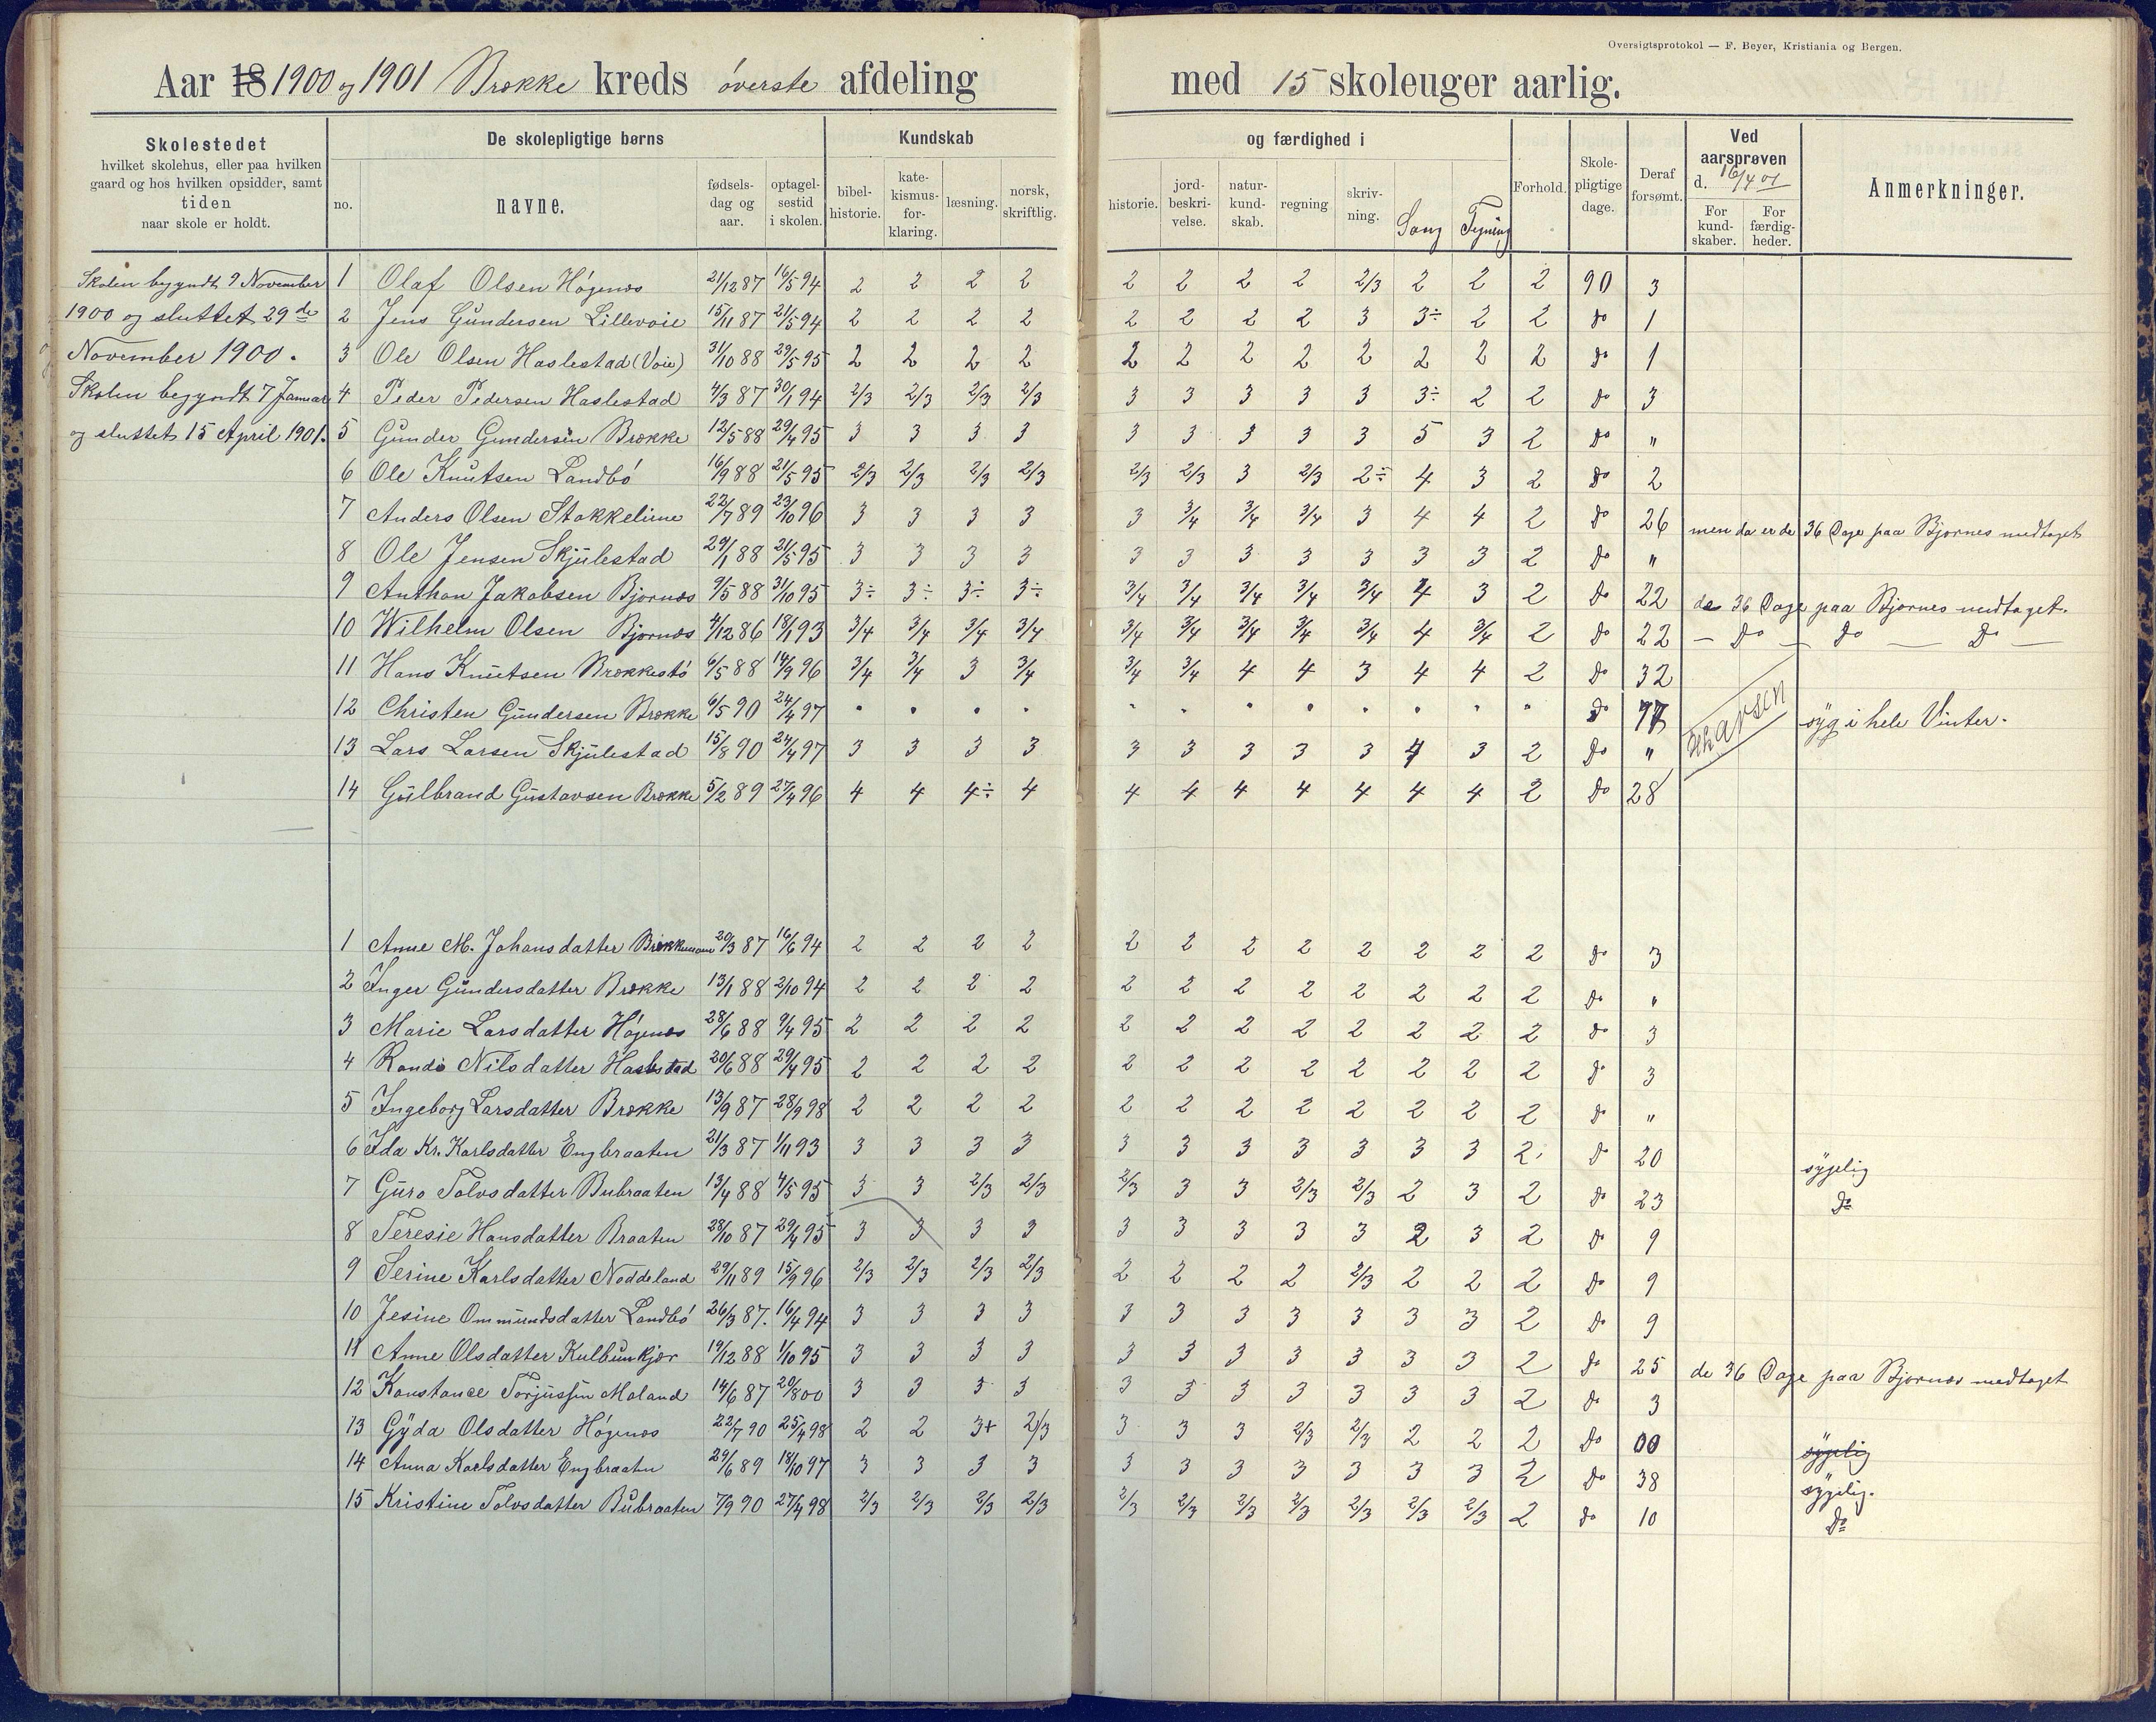 Oversigtsprotokol — F. Beyer, Kristiania og Bergen.
Aar 18 1900 og 1901 Brække kreds øverste afdeling med 15 skoleuger aarlig.
Skolestedet
hvilket skolehus, eller paa hvilken
gaard og hos hvilken opsidder, samt
tiden
naar skole er holdt.
De skolepligtige børns
no.
navne.
fødsels-
dag og
aar.
optagel-
sestid
i skolen.
Kundskab
bibel-
historie.
kate-
kismus-
for-
klaring.
læsning.
norsk,
skriftlig.
og færdighed i
historie.
jord-
beskri-
velse.
natur-
kund-
skab.
regning
skriv-
ning.
Sang
Tegning
Forhold.
Skole-
pligtige
dage.
Deraf
forsømt.
Ved
aarsprøven
d. 16/4 01
For
kund-
skaber.
For
færdig-
heder.
Anmerkninger.
Skolen begyndt 9 November
1900 og sluttet 29de
November 1900.
Skolen begyndt 7 Januar
og sluttet 15 April 1901.
1 Olaf Olsen Høgenæs 21/12 87 16/5 94 2 2 2 2 2 2 2 2 2/3 2 2 2 90 3
2 Jens Gundersen Lillevoie 15/11 87 21/5 94 2 2 2 2 2 2 2 2 3 3÷ 2 2 do 1
3 Ole Olsen Haslestad (Voie) 31/10 88 29/5 95 2 2 2 2 2 2 2 2 2 2 2 2 do 1
4 Peder Pedersen Haslestad 4/3 87 30/1 94 2/3 2/3 2/3 2/3 3 3 3 3 3 3÷ 2 2 do 3
5 Gunder Gundersen Brække 12/5 88 29/4 95 3 3 3 3 3 3 3 3 3 5 3 2 do "
6 Ole Knutsen Landbø 16/9 88 21/5 95 2/3 2/3 2/3 2/3 2/3 2/3 3 2/3 2÷ 4 3 2 do 2
7 Anders Olsen Stokkeliene 22/7 89 23/10 96 3 3 3 3 3 3/4 3/4 3/4 3 4 4 2 do 26 men da er de 36 Dage paa Bjornes medtaget
8 Ole Jensen Skjulestad 29/1 88 21/5 95 3 3 3 3 3 3 3 3 3 3 3 2 do "
9 Anthon Jakobsen Bjornæs 9/5 88 31/10 95 3÷ 3÷ 3÷ 3÷ 3/4 3/4 3/4 3/4 3/4 4 3 2 do 22 de 36 Dage paa Bjornes medtaget.
10 Wilhelm Olsen Bjornæs 4/12 86 18/1 93 3/4 3/4 3/4 3/4 3/4 3/4 3/4 3/4 3/4 4 3/4 2 do 22 — do — do — do —
11 Hans Knutsen Brækkestø 6/5 88 14/9 96 3/4 3/4 3 3/4 3/4 3/4 4 4 3 4 4 2 do 32
12 Christen Gundersen Brække 6/5 90 24/4 97 " " " " " " " " " " " " do syg i hele Vinter.
13 Lars Larsen Skjulestad 15/8 90 24/4 97 3 3 3 3 3 3 3 3 3 4 3 2 do "
14 Gulbrand Gustavsen Brække 5/2 89 27/4 96 4 4 4÷ 4 4 4 4 4 4 4 4 2 do 28
1 Anne M. Johansdatter 20/3 87 16/6 94 2 2 2 2 2 2 2 2 2 2 2 2 do 3
2 Inger Gundersdatter Brække 13/1 88 2/10 94 2 2 2 2 2 2 2 2 2 2 2 2 do "
3 Marie Larsdatter Høgenæs 28/6 88 9/4 95 2 2 2 2 2 2 2 2 2 2 2 2 do 3
4 Randi Nilsdatter Haslestad 20/6 88 29/4 95 2 2 2 2 2 2 2 2 2 2 2 2 do 3
5 Ingeborg Larsdatter Brække 13/9 87 28/9 98 2 2 2 2 2 2 2 2 2 2 2 2 do "
6 Ida Kr. Karlsdatter Engbraaten 21/3 87 1/11 93 3 3 3 3 3 3 3 3 3 3 3 2 do 20 sygelig
7 Guro Tolvsdatter Bubraaten 13/4 88 4/5 95 3 3 2/3 2/3 2/3 3 3 2/3 2/3 2 3 2 do 23 do
8 Teresie Hansdatter Braaten 28/10 87 29/4 95 3 3 3 3 3 3 3 3 3 2 3 2 do 9
9 Serine Karlsdatter Noddeland 29/11 89 15/9 96 2/3 2/3 2/3 2/3 2 2 2 2 2/3 2 2 2 do 9
10 Jesine Ommundsdatter Landbø 26/3 87. 16/4 94 3 3 3 3 3 3 3 3 3 3 3 2 do 9
11 Anne Olsdatter Kulbunkjær 19/12 88 1/10 95 3 3 3 3 3 3 3 3 3 3 3 2 do 25 de 36 Dage paa Bjornæs medtaget
12 Konstance Torjussen Moland 14/6 87 20/8 00 3 3 3 3 3 3 3 3 3 3 3 2 do 3
13 Gyda Olsdatter Høgenæs 22/7 90 25/4 98 2 2 3+ 2/3 3 3 3 2/3 2/3 2 2 2 do 00 sygelig
14 Anna Karlsdatter Engbraaten 29/6 89 18/10 97 3 3 3 3 3 3 3 3 3 3 3 2 do 38 sygelig.
15 Kristine Tolvsdatter Bubraaten 7/9 90 27/4 98 2/3 2/3 2/3 2/3 2/3 2/3 2/3 2/3 2/3 2/3 2/3 2 do 10 do